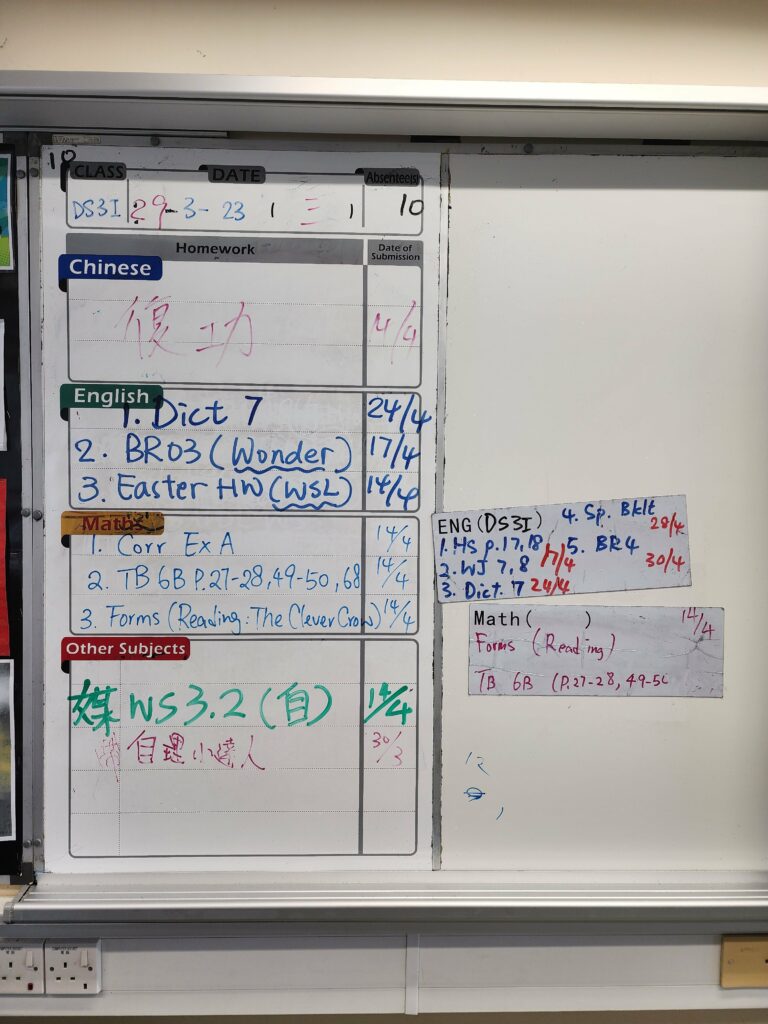 18
CLASS DATE Absentee(s)
DS3I 29-3-23 (三) 10
Homework Date of Submission
Chinese
復功 14/4
English
1. Dict 7 24/4
2. BR03 (Wonder) 17/4
3. Easter HW (WSL) 14/4
Maths
1. Corr Ex A 14/4
2. TB 6B P.27-28, 49-50, 68 14/4
3. Forms (Reading: The Clever Crow) 14/4
Other Subjects
媒 WS 3.2 (自) 14/4
自理小達人 30/3
ENG (DS3I)
1. HS p.17, 18
2. WJ 7, 8 17/4
3. Dict. 7 24/4
4. Sp. Bklt 28/4
5. BR4 30/4
Math ( ) 14/4
Forms (Reading)
TB 6B (P.27-28, 49-50